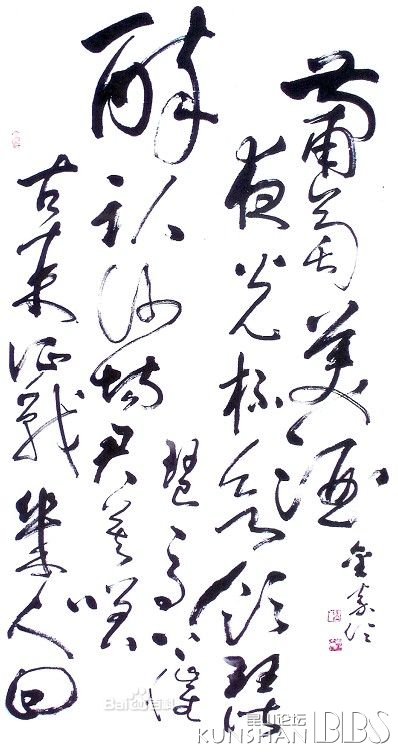 葡萄美酒
夜光杯欲飲琵
琶馬上催
醉臥沙場君莫笑
古来征戰幾人回
Bai百科
昆山论坛
KUNSHAN BBS